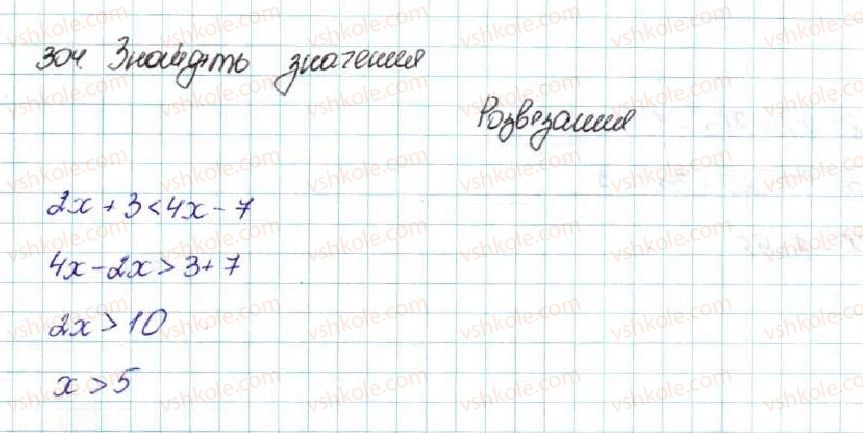 304. Знайдіть значення
Розв'язання
2x + 3 < 4x - 7
4x - 2x > 3 + 7
2x > 10
x > 5